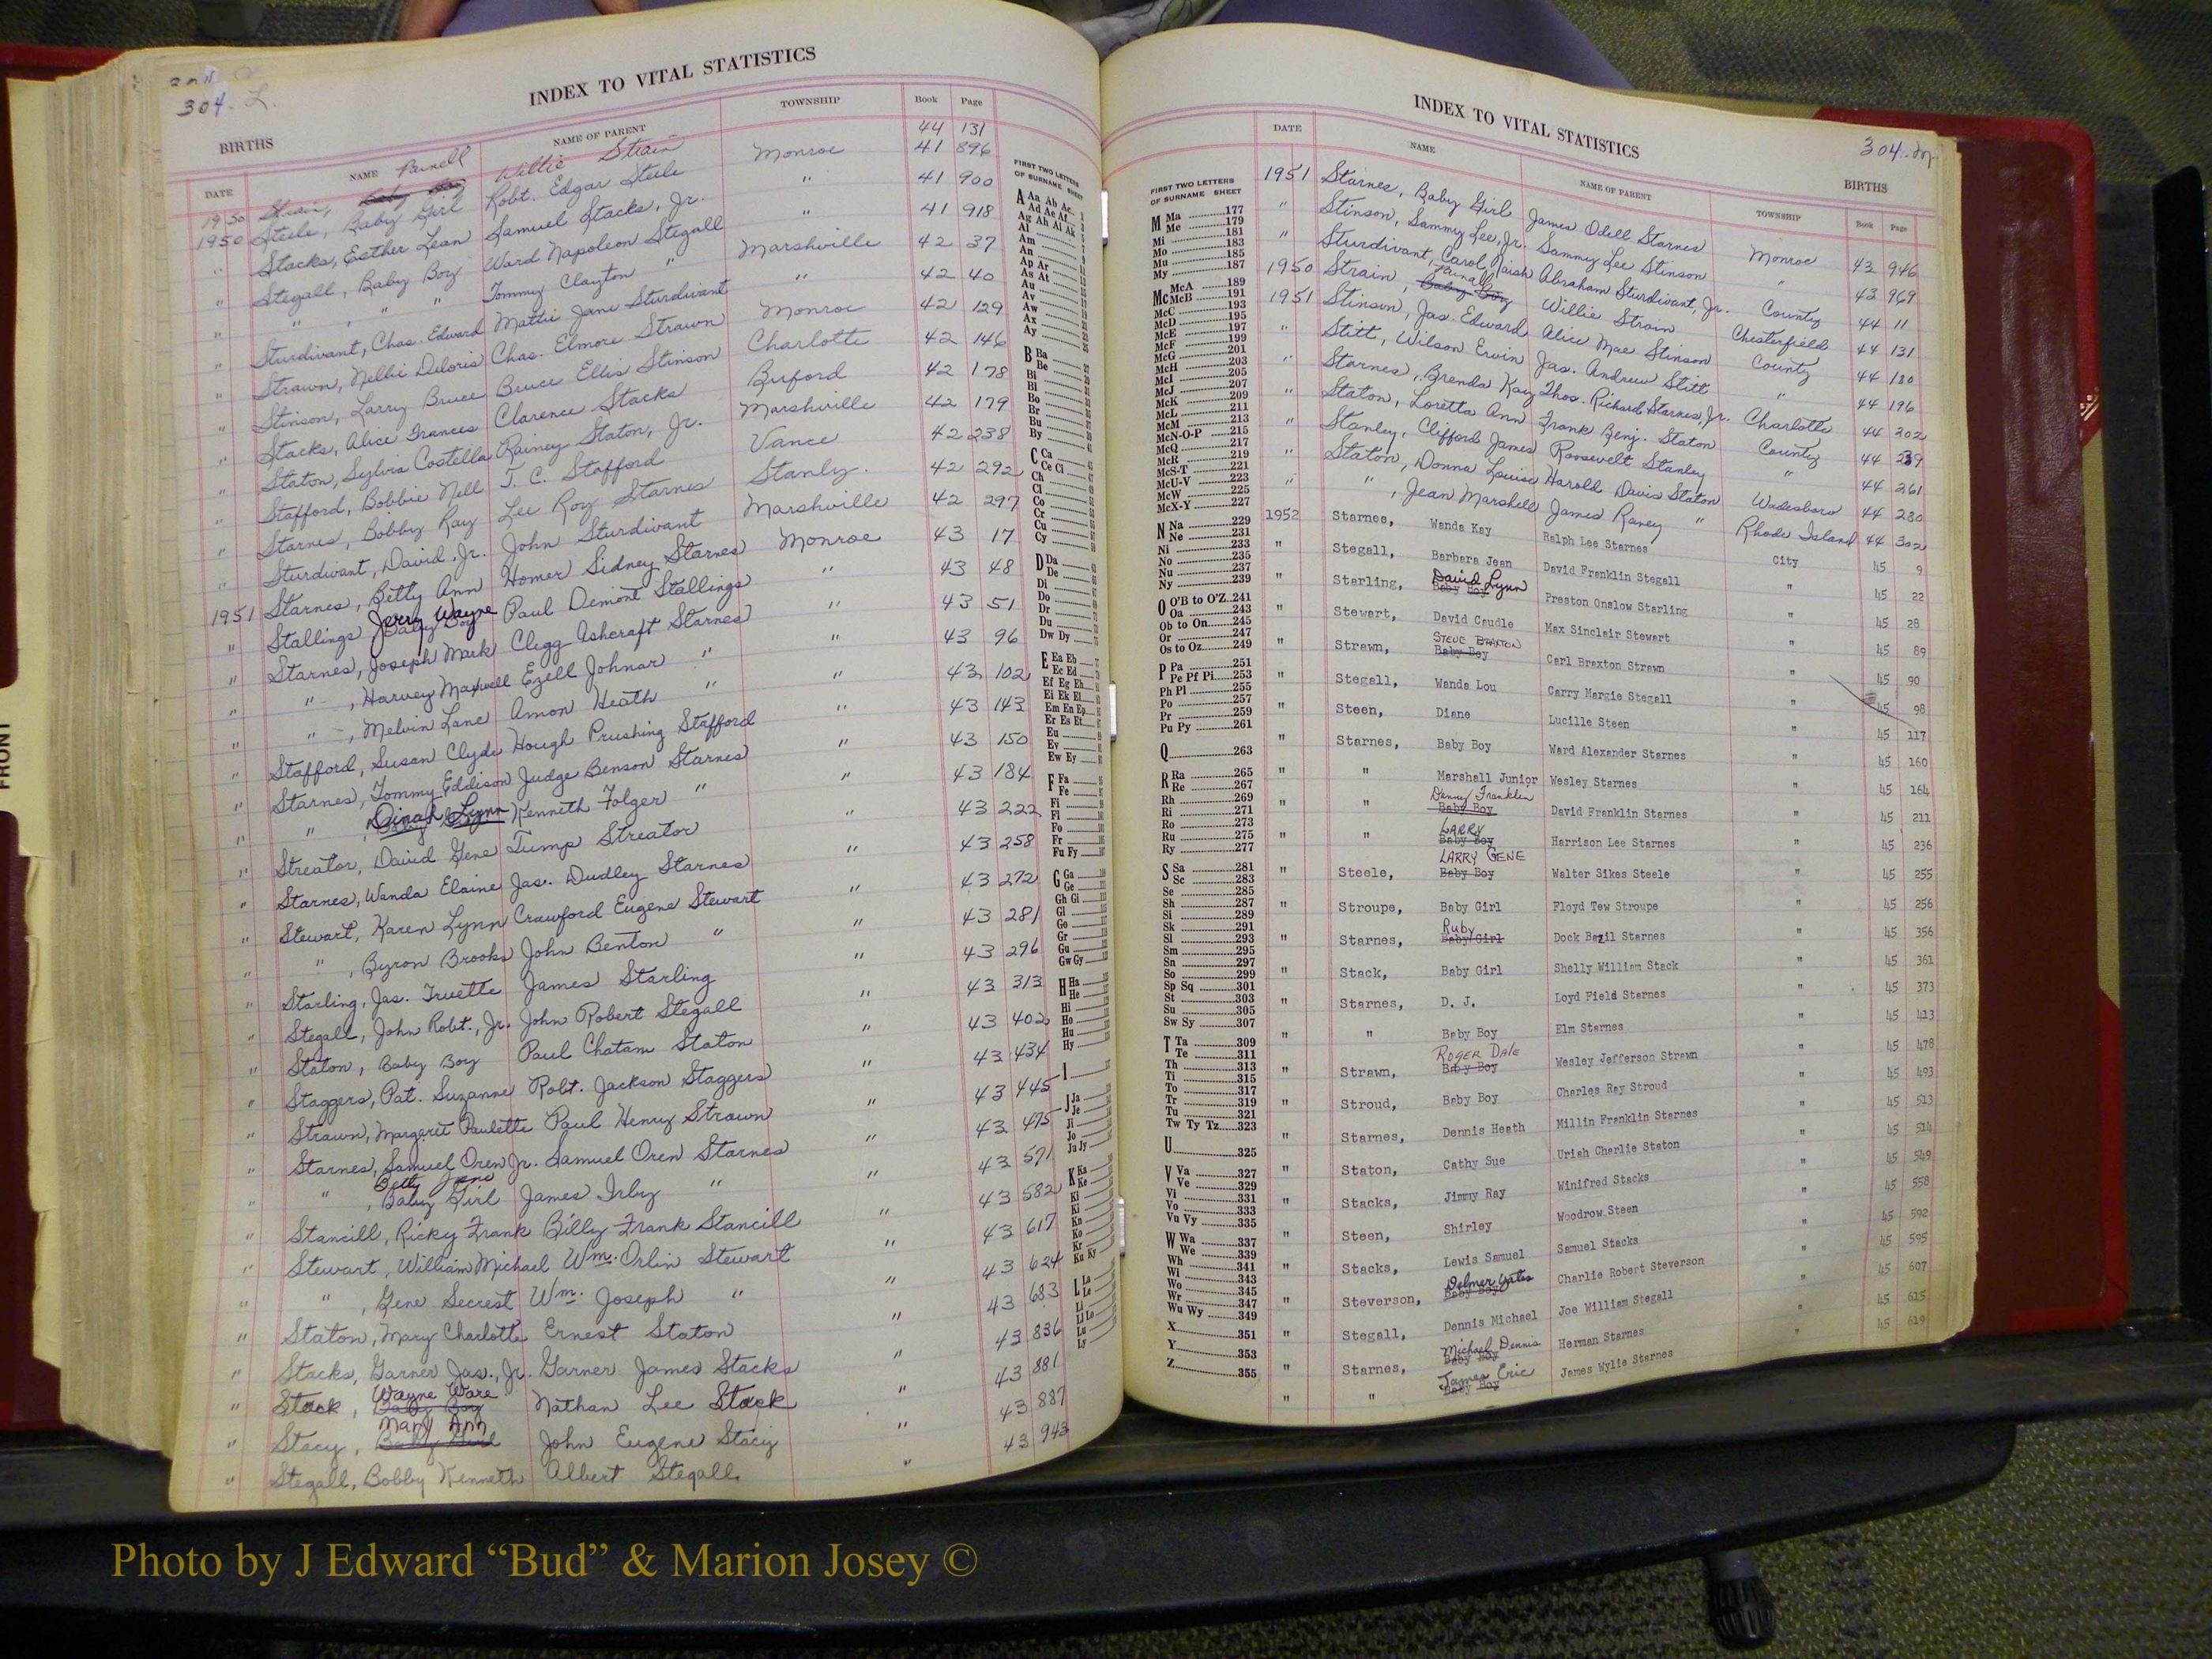 304-L.
INDEX TO VITAL STATISTICS
BIRTHS
DATE NAME NAME OF PARENT TOWNSHIP Book Page
1950 Strain, Purnell Baby Boy Willie Strain 44 131
1950 Steele, Baby Girl Robt. Edgar Steele Monroe 41 896
" Stacks, Esther Lean Samuel Stacks, Jr. " 41 900
" Stegall, Baby Boy Ward Napoleon Stegall " 41 918
" " , " " Tommy Clayton " Marshville 42 37
" Sturdivant, Chas. Edward Mattie Jane Sturdivant " 42 40
" Strawn, Nellie Deloris Chas. Elmore Strawn Monroe 42 129
" Stinson, Larry Bruce Bruce Ellis Stinson Charlotte 42 146
" Stacks, Alice Frances Clarence Stacks Buford 42 178
" Staton, Sylvia Costella Rainey Staton, Jr. Marshville 42 179
" Stafford, Bobbie Nell T. C. Stafford Vance 42 238
" Starnes, Bobby Ray Lee Roy Starnes Stanly. 42 292
" Sturdivant, David Jr. John Sturdivant Marshville 42 297
1951 Starnes, Betty Ann Homer Sidney Starnes Monroe 43 17
" Stallings Jerry Wayne Baby Boy Paul Demont Stallings " 43 48
" Starnes, Joseph Mark Clegg Ashcraft Starnes " 43 51
" " , Harvey Maxwell Ezell Johnar " " 43 96
" " , Melvin Lane Amon Heath " " 43 102
" Stafford, Susan Clyde Hough Prushing Stafford " 43 143
" Starnes, Tommy Eddison Judge Benson Starnes " 43 150
" " , Dinah Lynn Kenneth Folger " " 43 184
" Streator, David Gene Tump Streator " 43 222
" Starnes, Wanda Elaine Jas. Dudley Starnes " 43 258
" Stewart, Karen Lynn Crawford Eugene Stewart " 43 272
" " , Byron Brooks John Benton " " 43 281
" Starling, Jas. Truette James Starling " 43 296
" Stegall, John Robt., Jr. John Robert Stegall " 43 313
" Staton, Baby Boy Paul Chatam Staton " 43 402
" Staggers, Pat. Suzanne Robt. Jackson Staggers " 43 434
" Strawn, Margaret Paulette Paul Henry Strawn " 43 445
" Starnes, Samuel Oren Jr. Samuel Oren Starnes " 43 475
" " , Betty Jane Baby Girl James Irby " " 43 571
" Stancill, Ricky Frank Billy Frank Stancill " 43 582
" Stewart, William Michael Wm. Orlin Stewart " 43 617
" " , Gene Secrest Wm. Joseph " " 43 624
" Staton, Mary Charlotte Ernest Staton " 43 683
" Stacks, Garner Jas., Jr. Garner James Stacks " 43 836
" Stack, Wayne Ware Baby Boy Nathan Lee Stack " 43 881
" Stacy, Mary Ann Baby Girl John Eugene Stacy " 43 887
" Stegall, Bobby Kenneth Albert Stegall " 43 943
FIRST TWO LETTERS
OF SURNAME SHEET
A Aa Ab Ac
Ad Ae Af
Ag Ah Ai Ak
Al
Am
An
Ap Ar
As At
Au
Av
Aw
Ax
Ay
B Ba
Be
Bi
Bl
Bo
Br
Bu
By
C Ca
Ce Ci
Ch
Cl
Co
Cr
Cu
Cy
D Da
De
Di
Do
Dr
Du
Dw Dy
E Ea Eb
Ec Ed
Ef Eg Eh
Ei Ek El
Em En Ep
Er Es Et
Eu
Ev
Ew Ey
F Fa
Fe
Fi
Fl
Fo
Fr
Fu Fy
G Ga
Ge
Gh Gi
Gl
Go
Gr
Gu
Gw Gy
H Ha
He
Hi
Ho
Hu
Hy
I
J Ja
Je
Ji
Jo
Ju Jy
K Ka
Ke
Ki
Kl
Kn
Ko
Kr
Ku Ky
L La
Le
Li
Ll Lo
Lu
Ly
304-M
INDEX TO VITAL STATISTICS
BIRTHS
DATE NAME NAME OF PARENT TOWNSHIP Book Page
FIRST TWO LETTERS
OF SURNAME SHEET
M Ma 177
Me 179
Mi 181
Mo 183
Mu 185
My 187
Mc McA 189
McB 191
McC 193
McD 195
McE 197
McF 199
McG 201
McH 203
McI 205
McJ 207
McK 209
McL 211
McM 213
McN-O-P 215
McQ 217
McR 219
McS-T 221
McU-V 223
McW 225
McX-Y 227
N Na 229
Ne 231
Ni 233
No 235
Nu 237
Ny 239
O O'B to O'Z 241
Oa 243
Ob to On 245
Or 247
Os to Oz 249
P Pa 251
Pe Pf Pi 253
Ph Pl 255
Po 257
Pr 259
Pu Py 261
Q 263
R Ra 265
Re 267
Rh 269
Ri 271
Ro 273
Ru 275
Ry 277
S Sa 281
Sc 283
Se 285
Sh 287
Si 289
Sk 291
Sl 293
Sm 295
Sn 297
So 299
Sp Sq 301
St 303
Su 305
Sw Sy 307
T Ta 309
Te 311
Th 313
Ti 315
To 317
Tr 319
Tu 321
Tw Ty Tz 323
U 325
V Va 327
Ve 329
Vi 331
Vo 333
Vu Vy 335
W Wa 337
We 339
Wh 341
Wi 343
Wo 345
Wr 347
Wu Wy 349
X 351
Y 353
Z 355
1951 Starnes, Baby Girl James Odell Starnes Monroe 43 946
" Stinson, Sammy Lee, Jr. Sammy Lee Stinson " 43 969
" Sturdivant, Carol Naish Abraham Sturdivant, Jr. County 44 11
1950 Strain, Purnell Baby Boy Willie Strain Chesterfield 44 131
1951 Stinson, Jas. Edward Alice Mae Stinson County 44 180
" Stitt, Wilson Ervin Jas. Andrew Stitt " 44 196
" Starnes, Brenda Kay Thos. Richard Starnes, Jr. Charlotte 44 202
" Staton, Loretta Ann Frank Benj. Staton County 44 239
" Stanley, Clifford James Roosevelt Stanley " 44 261
" Staton, Donna Louise Harold Davis Staton Wadesboro 44 280
" " , Jean Marshell James Raney " Rhode Island 44 302
1952 Starnes, Wanda Kay Ralph Lee Starnes City 45 9
" Stegall, Barbara Jean David Franklin Stegall " 45 22
" Starling, David Lynn Baby Boy Preston Onslow Starling " 45 28
" Stewart, David Caudle Max Sinclair Stewart " 45 89
" Strawn, STEVE BRAXTON Baby Boy Carl Braxton Strawn " 45 90
" Stegall, Wanda Lou Carry Margie Stegall " 45 98
" Steen, Diane Lucille Steen " 45 117
" Starnes, Baby Boy Ward Alexander Starnes " 45 160
" " Marshall Junior Wesley Starnes " 45 164
" " Denny Franklin Baby Boy David Franklin Starnes " 45 211
" " LARRY Baby Boy Harrison Lee Starnes " 45 236
" Steele, LARRY GENE Baby Boy Walter Sikes Steele " 45 255
" Stroupe, Baby Girl Floyd Tew Stroupe " 45 256
" Starnes, Ruby Baby Girl Dock Bazil Starnes " 45 356
" Stack, Baby Girl Shelly William Stack " 45 361
" Starnes, D. J. Loyd Field Starnes " 45 373
" " Baby Boy Elm Starnes " 45 413
" Strawn, ROGER DALE Baby Boy Wesley Jefferson Strawn " 45 478
" Stroud, Baby Boy Charles Ray Stroud " 45 493
" Starnes, Dennis Heath Millin Franklin Starnes " 45 513
" Staton, Cathy Sue Uriah Charlie Staton " 45 514
" Stacks, Jimmy Ray Winifred Stacks " 45 549
" Steen, Shirley Woodrow Steen " 45 558
" Stacks, Lewis Samuel Samuel Stacks " 45 592
" Steverson, Delmer Yates Baby Boy Charlie Robert Steverson " 45 595
" Stegall, Dennis Michael Joe William Stegall " 45 607
" Starnes, Michael Dennis Baby Boy Herman Starnes " 45 615
" " James Eric Baby Boy James Wylie Starnes " 45 619
FRONT
Photo by J Edward “Bud” & Marion Josey ©